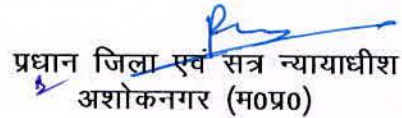 प्रधान जिला एवं सत्र न्यायाधीश
अशोकनगर (म0प्र0)